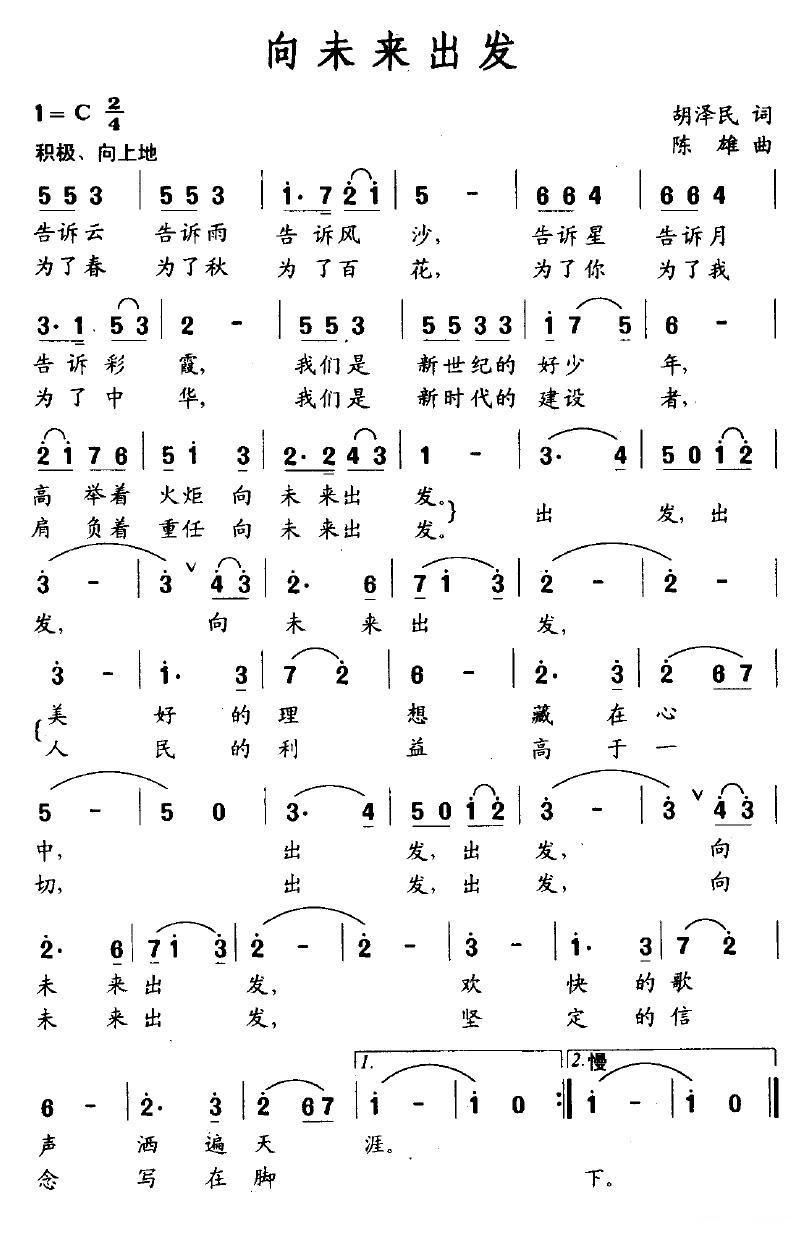 向未来出发
1=C 2/4
胡泽民 词
积极、向上地
陈 雄 曲
5 5 3 | 5 5 3 | i· 7 2 i | 5 - | 6 6 4 | 6 6 4 |
告诉云 告诉雨 告 诉风 沙, 告诉星 告诉月
为了春 为了秋 为 了百 花, 为了你 为了我
3· 1 5 3 | 2 - | 5 5 3 | 5 5 3 3 | i 7 5 | 6 - |
告 诉彩 霞, 我们是 新世纪的 好少 年,
为 了中 华, 我们是 新时代的 建设 者,
2 i 7 6 | 5 i 3 | 2· 2 4 3 | 1 - | 3· 4 | 5 0 i 2 |
高 举着 火炬 向 未 来出 发。 出 发, 出
肩 负着 重任 向 未 来出 发。
3 - | 3 ∨ 4 3 | 2· 6 | 7 i 3 | 2 - | 2 - |
发, 向 未 来 出 发,
3 - | i· 3 | 7 2 | 6 - | 2· 3 | 2 6 7 |
美 好 的 理 想 藏 在 心
人 民 的 利 益 高 于 一
5 - | 5 0 | 3· 4 | 5 0 i 2 | 3 - | 3 ∨ 4 3 |
中, 出 发, 出 发, 向
切, 出 发, 出 发, 向
2· 6 | 7 i 3 | 2 - | 2 - | 3 - | i· 3 | 7 2 |
未 来 出 发, 欢 快 的 歌
未 来 出 发, 坚 定 的 信
1. 2. 慢
6 - | 2· 3 | 2 6 7 | i - | i 0 :‖ i - | i 0 ‖
声 洒 遍 天 涯。
念 写 在 脚 下。